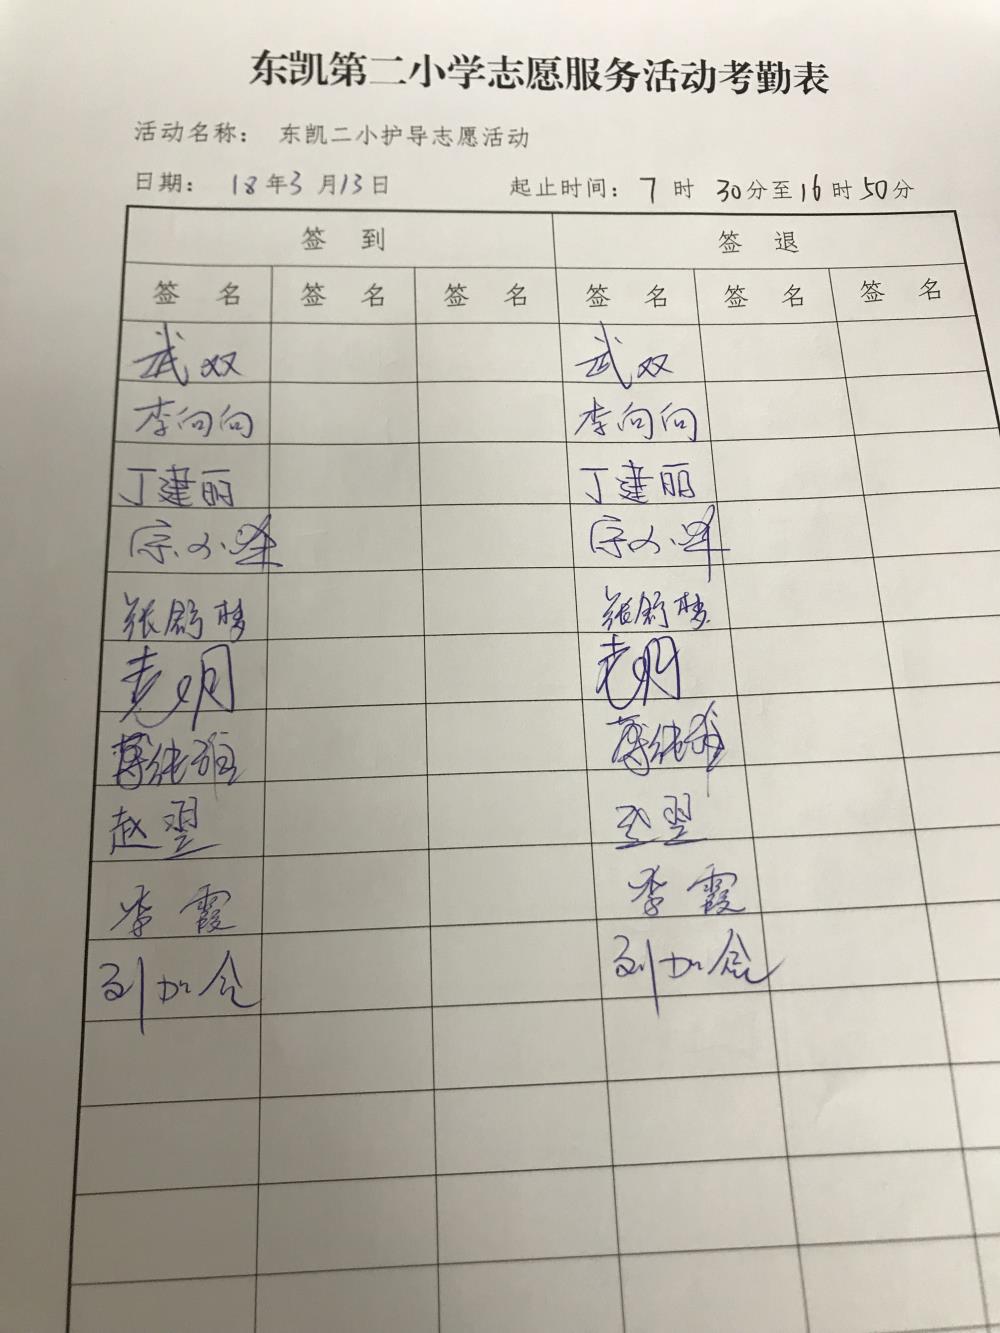 东凯第二小学志愿服务活动考勤表
活动名称： 东凯二小护导志愿活动
日期： 18年3月13日 起止时间：7时30分至16时50分
签到 签退
签名 签名 签名 签名 签名 签名
武双 武双
李向向 李向向
丁建丽 丁建丽
宗小峰 宗小峰
张舒梦 张舒梦
赵翌 赵翌
李霞 李霞
刘加会 刘加会